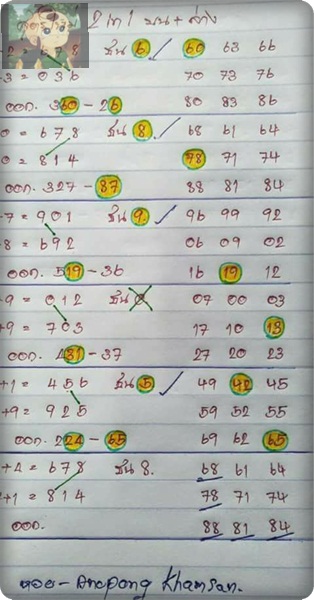 2 in 1 บน + ล่าง
8 ชน 6 60 63 66
3 = 036 70 73 76
ออก. 360 - 26 80 83 86
0 = 678 ชน 8. 68 61 64
0 = 814 78 71 74
ออก. 327 - 87 88 81 84
-7 = 901 ชน 9. 96 99 92
8 = 692 06 09 02
ออก. 519 - 36 16 19 12
+9 = 012 ชน 07 00 03
+9 = 703 17 10 13
ออก. 481 - 37 27 20 23
+1 = 456 ชน 5 49 42 45
+9 = 925 59 52 55
ออก. 224 - 65 69 62 65
+4 = 678 ชน 8. 68 61 64
+1 = 814 78 71 74
ออก. 88 81 84
Khamsan.